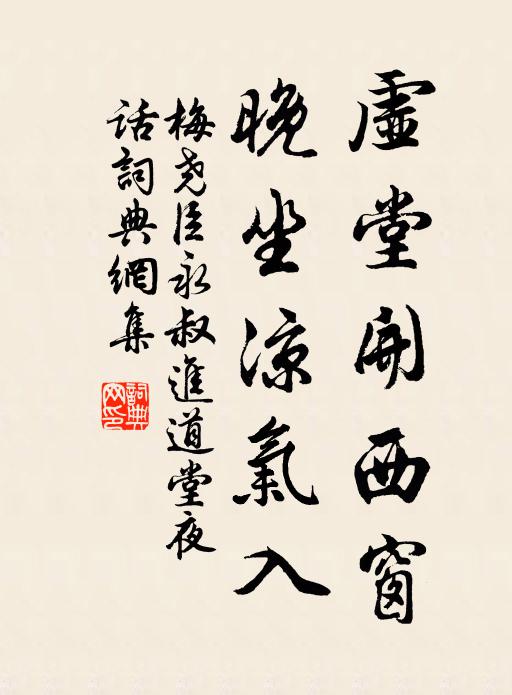 虛堂開西窗
晚坐涼氣入
梅堯臣永叔進道堂夜
話詞典網集
詞典網印